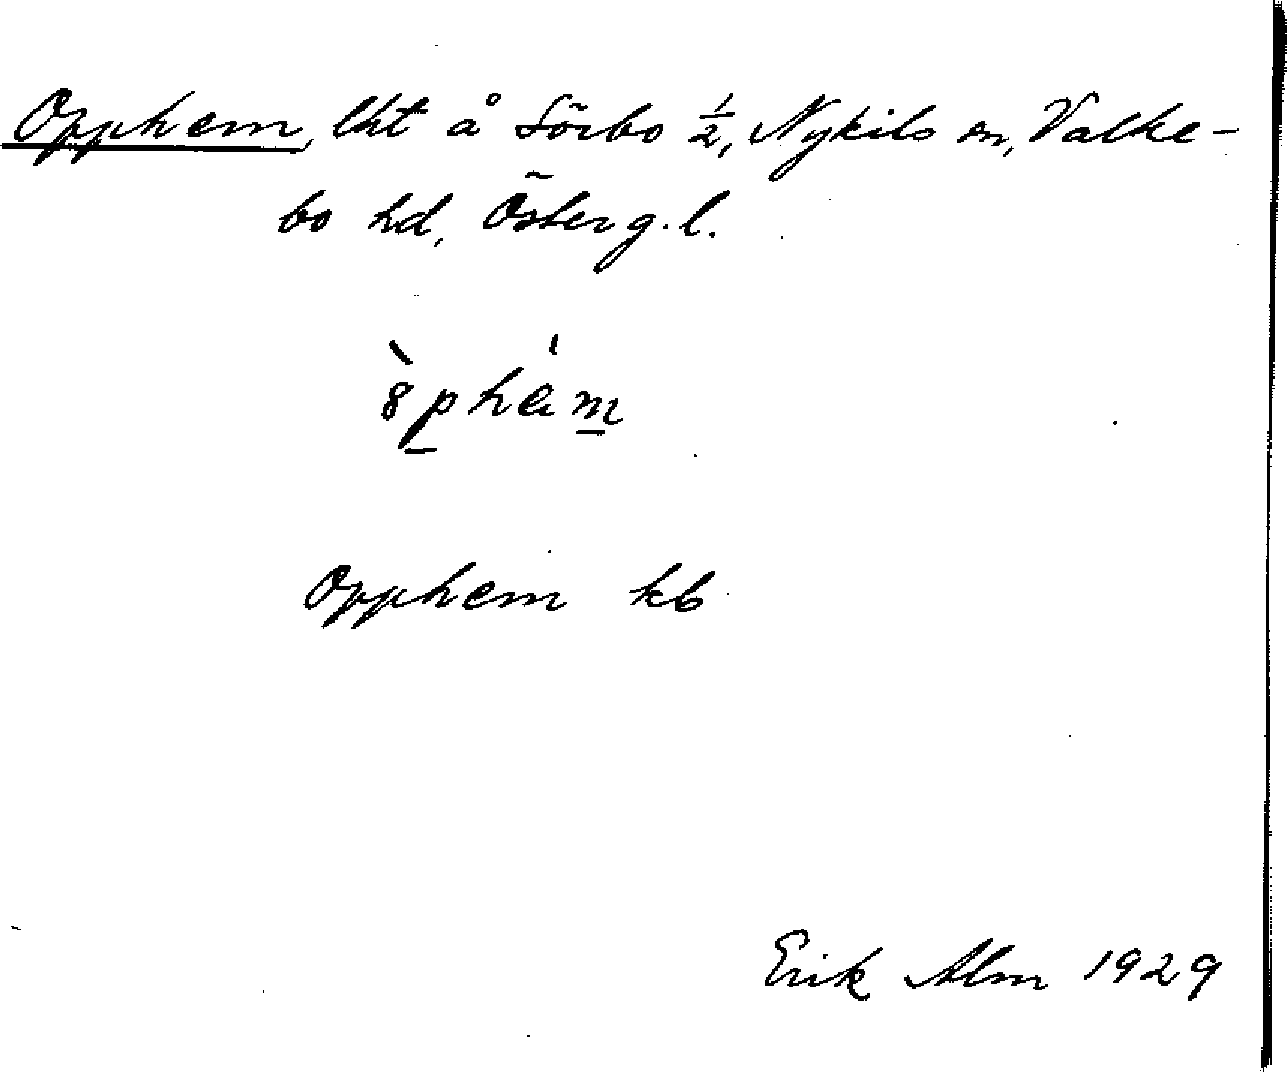 Opphem, lht å Sörbo ½, Nykils sn, Valke-
bo hd, Österg. l.
Opphem kb
Erik Alm 1929